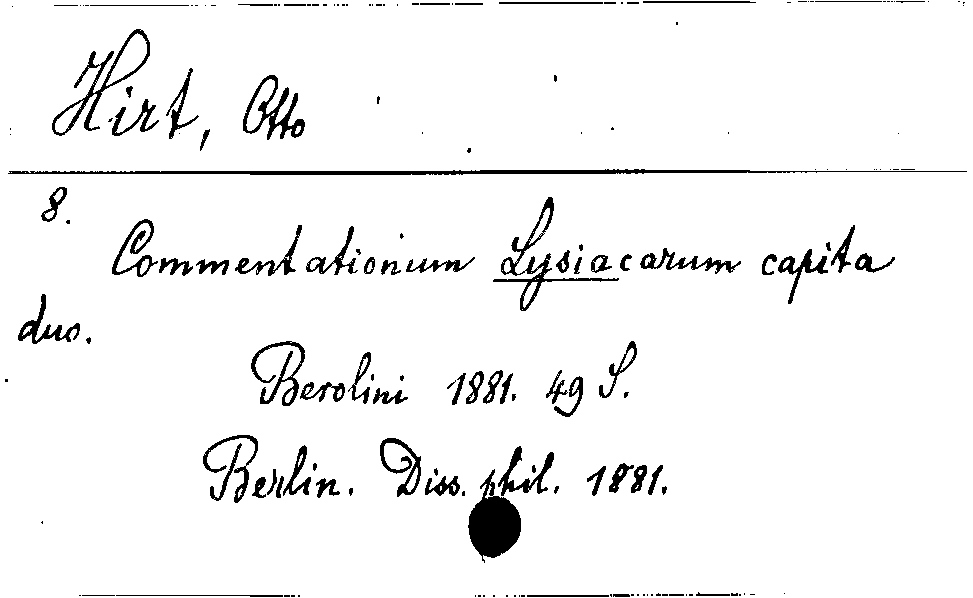 Hirt, Otto
8.
Commentationum Lysiacarum capita
duo.
Berolini 1881. 49 S.
Berlin. Diss. phil. 1881.